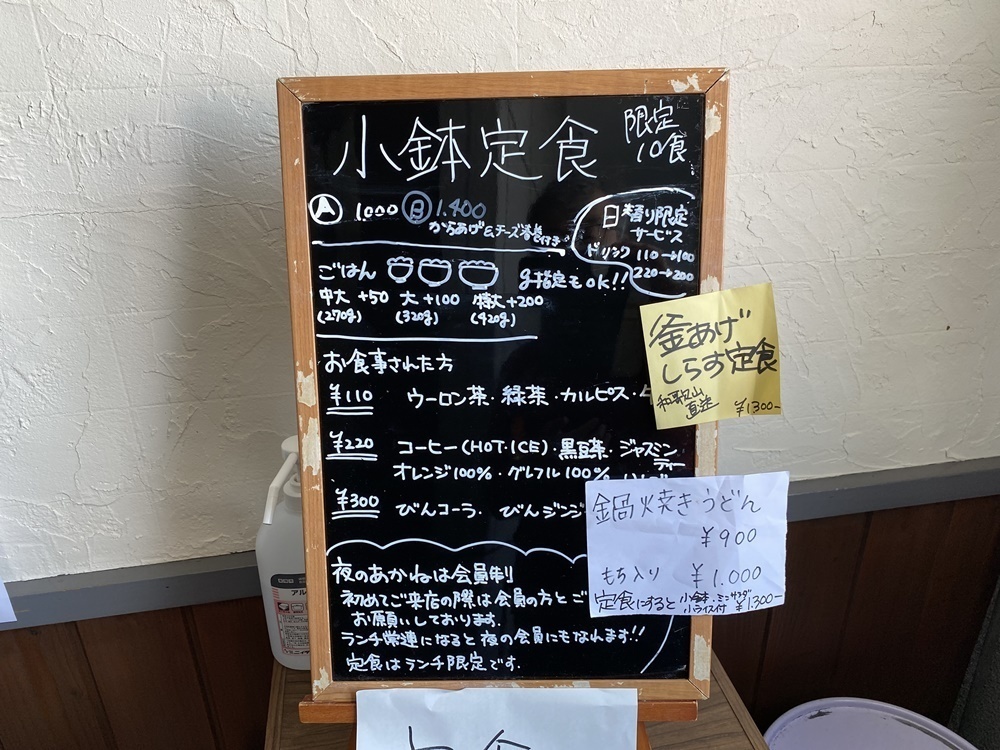 小鉢定食
限定
10食
A 1.000 B 1.400
からあげ&チーズ春巻付き
日替り限定
サービス
ドリンク 110→100
220→200
ごはん g指定もOK!!
中大 +50 大 +100 特大 +200
(270g) (320g) (420g)
お食事された方
¥110 ウーロン茶・緑茶・カルピス・
¥220 コーヒー(HOT・ICE)・黒豆茶・ジャスミンティー
オレンジ100%・グレフル100%
¥300 びんコーラ. びんジンジ
夜のあかねは会員制
初めてご来店の際は会員の方とご
お願いしております.
ランチ常連になると夜の会員にもなれます!!
定食はランチ限定です.
釜あげ
しらす定食
和歌山
直送 ¥1300-
鍋焼き・うどん
¥900
もち入り ¥1.000
定食にすると 小鉢・ミニサラダ
小ライス付 ¥1.300-
アル
定食